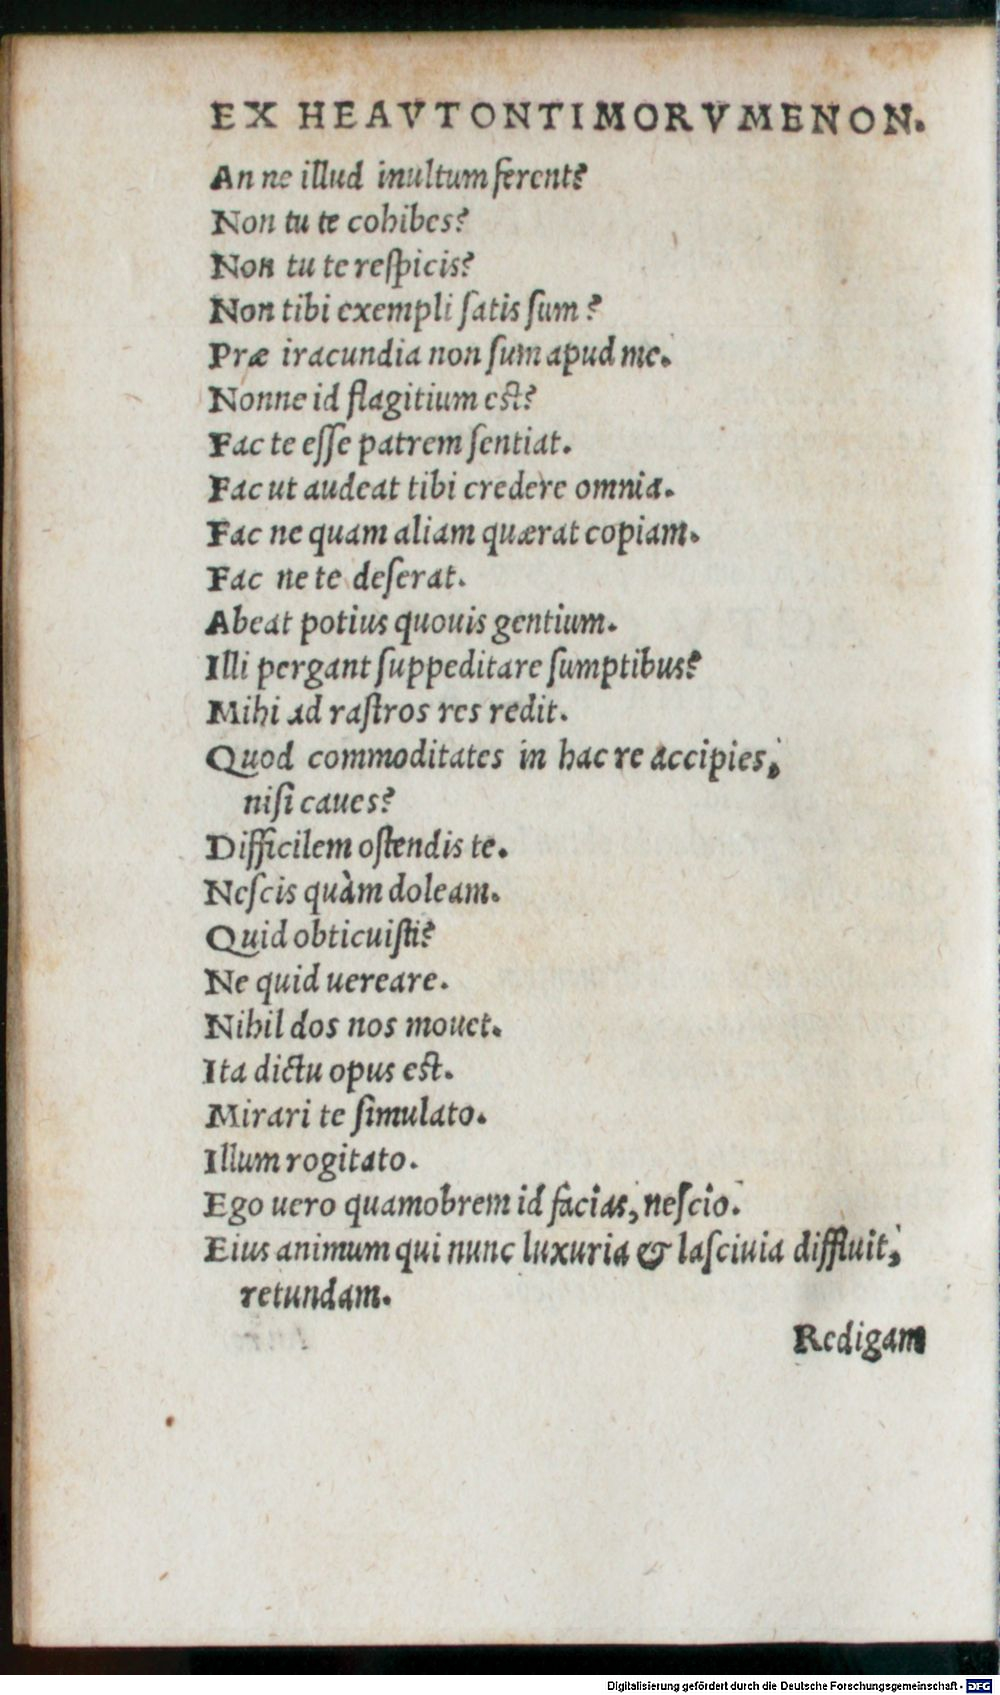 EX HEAVTONTIMORVMENON.
An ne illud inultum ferent?
Non tu te cohibes?
Non tu te reſpicis?
Non tibi exempli ſatis ſum?
Præ iracundia non ſum apud me.
Nonne id flagitium est?
Fac te eſſe patrem ſentiat.
Fac ut audeat tibi credere omnia.
Fac ne quam aliam quærat copiam.
Fac ne te deſerat.
Abeat potius quouis gentium.
Illi pergant ſuppeditare ſumptibus?
Mihi ad raſtros res redit.
Quod commoditates in hac re accipies,
niſi caues?
Difficilem oſtendis te.
Neſcis quàm doleam.
Quid obticuiſti?
Ne quid uereare.
Nihil dos nos mouet.
Ita dictu opus est.
Mirari te ſimulato.
Illum rogitato.
Ego uero quamobrem id facias, neſcio.
Eius animum qui nunc luxuria & laſciuia diffluit,
retundam.
Redigam
Digitalisierung gefördert durch die Deutsche Forschungsgemeinschaft - DFG